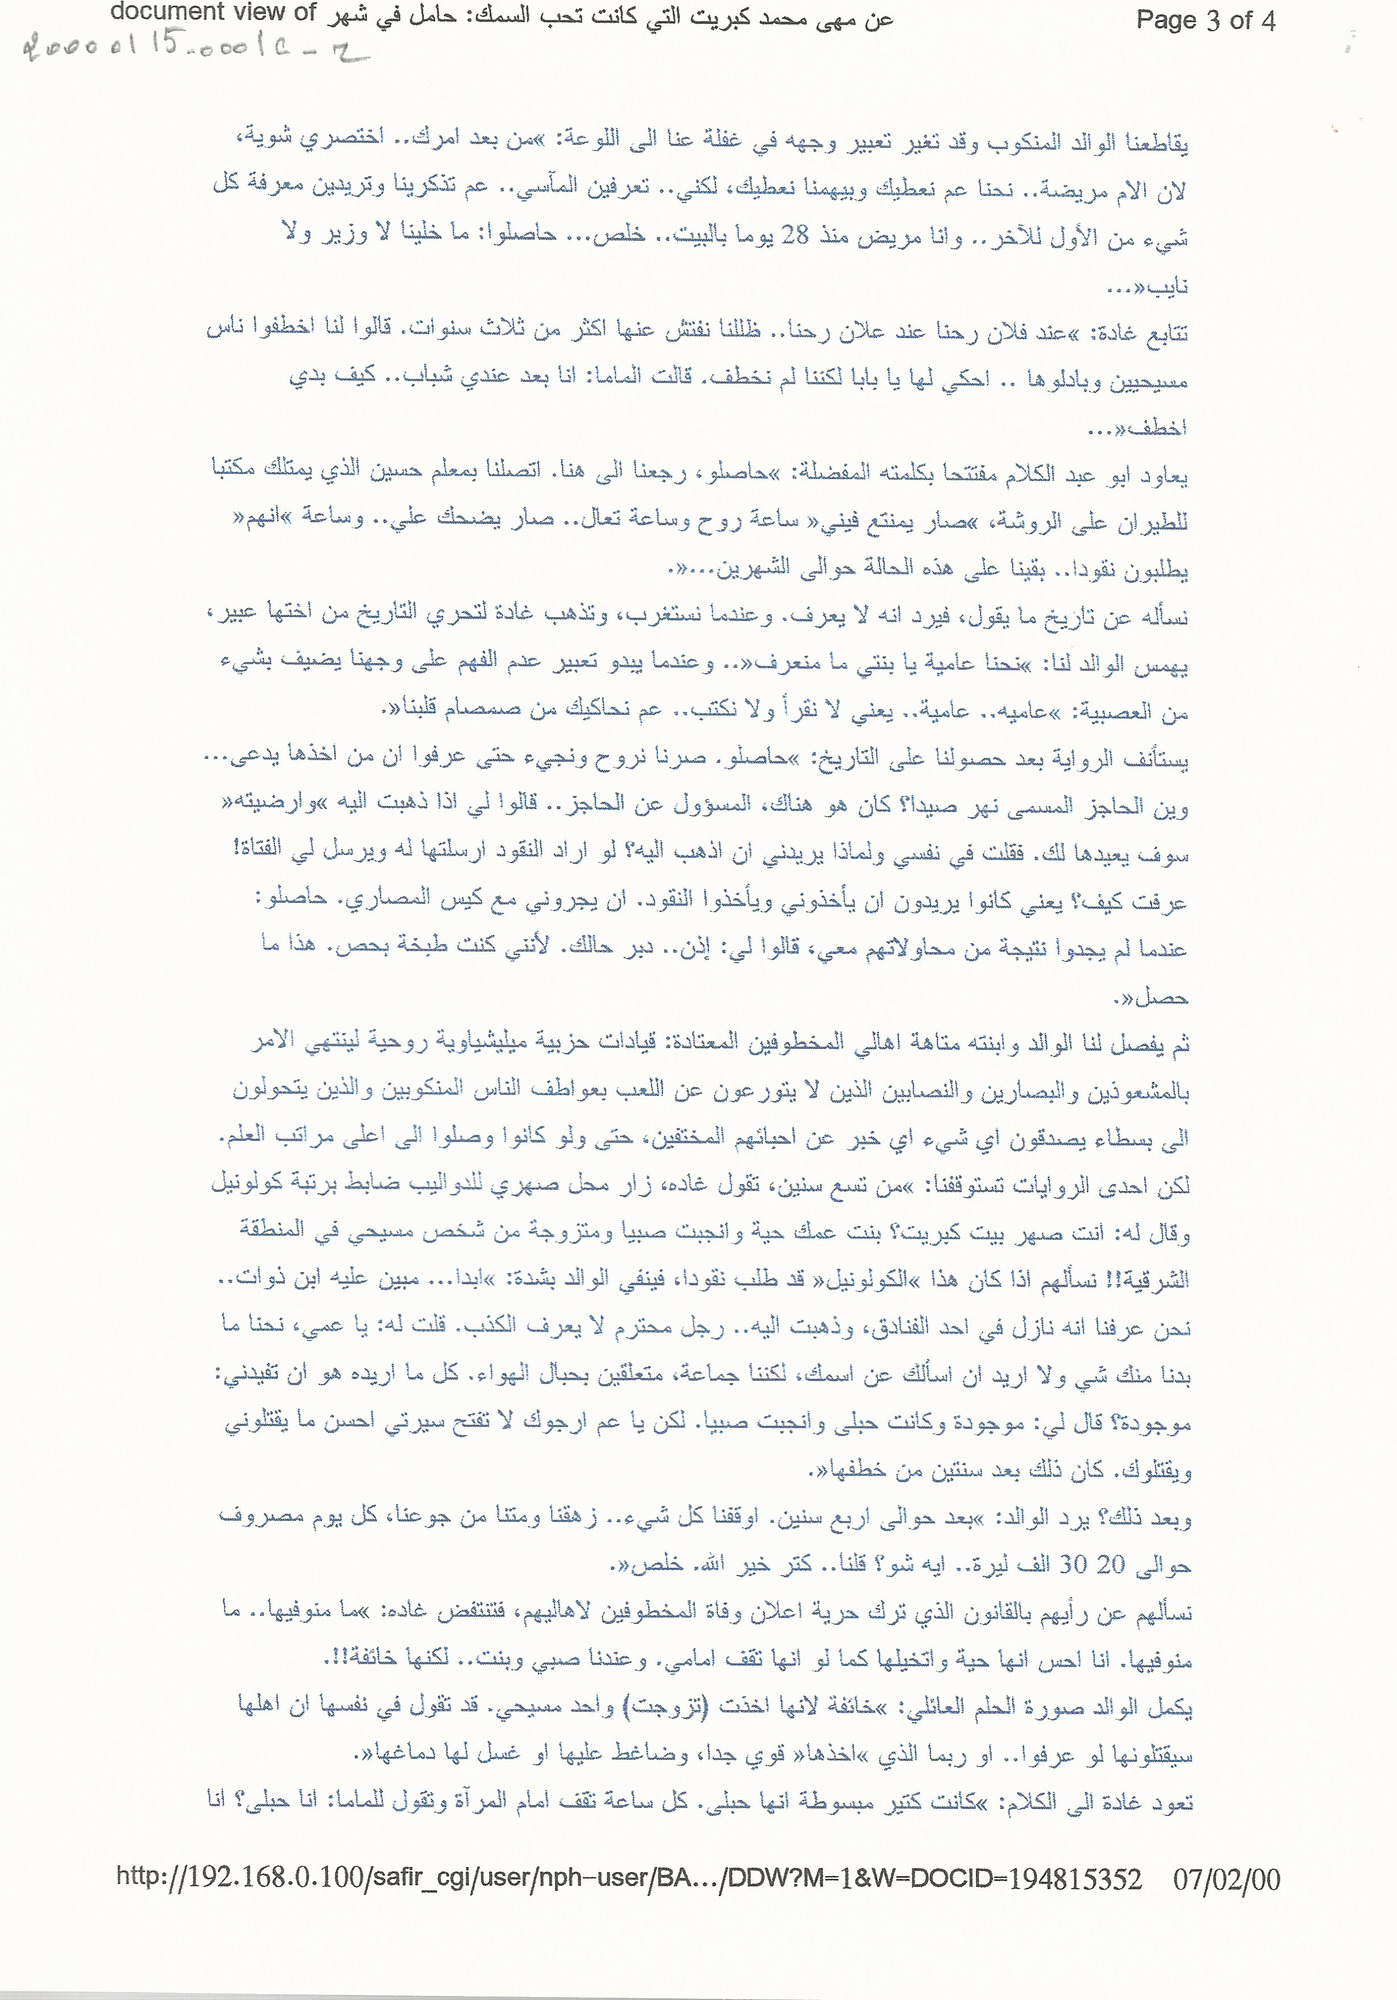 document view of عن مهى محمد كبريت التي كانت تحب السمك: حامل في شهر Page 3 of 4
20000115-0001c-2
يقاطعنا الوالد المنكوب وقد تغير تعبير وجهه في غفلة عنا الى اللوعة: »من بعد امرك.. اختصري شوية،
لان الام مريضة.. نحنا عم نعطيك وبيهمنا نعطيك، لكني.. تعرفين المآسي.. عم تذكرينا وتريدين معرفة كل
شيء من الأول للآخر.. وانا مريض منذ 28 يوما بالبيت.. خلص... حاصلوا: ما خلينا لا وزير ولا
نايب«...
تتابع غادة: »عند فلان رحنا عند علان رحنا.. ظللنا نفتش عنها اكثر من ثلاث سنوات. قالوا لنا اخطفوا ناس
مسيحيين وبادلوها .. احكي لها يا بابا لكننا لم نخطف. قالت الماما: انا بعد عندي شباب.. كيف بدي
اخطف«...
يعاود ابو عبد الكلام مفتتحا بكلمته المفضلة: »حاصلو، رجعنا الى هنا. اتصلنا بمعلم حسين الذي يمتلك مكتبا
للطيران على الروشة، »صار يمنتع فيني« ساعة روح وساعة تعال.. صار يضحك علي.. وساعة »انهم«
يطلبون نقودا.. بقينا على هذه الحالة حوالى الشهرين...«.
نسأله عن تاريخ ما يقول، فيرد انه لا يعرف. وعندما نستغرب، وتذهب غادة لتحري التاريخ من اختها عبير،
يهمس الوالد لنا: »نحنا عامية يا بنتي ما منعرف«.. وعندما يبدو تعبير عدم الفهم على وجهنا يضيف بشيء
من العصبية: »عاميه.. عامية.. يعني لا نقرأ ولا نكتب.. عم نحاكيك من صمصام قلبنا«.
يستأنف الرواية بعد حصولنا على التاريخ: »حاصلو. صرنا نروح ونجيء حتى عرفوا ان من اخذها يدعى...
وين الحاجز المسمى نهر صيدا؟ كان هو هناك، المسؤول عن الحاجز.. قالوا لي اذا ذهبت اليه »وارضيته«
سوف يعيدها لك. فقلت في نفسي ولماذا يريدني ان اذهب اليه؟ لو اراد النقود ارسلتها له ويرسل لي الفتاة!
عرفت كيف؟ يعني كانوا يريدون ان يأخذوني ويأخذوا النقود. ان يجروني مع كيس المصاري. حاصلو:
عندما لم يجدوا نتيجة من محاولاتهم معي، قالوا لي: إذن.. دبر حالك. لأنني كنت طبخة بحص. هذا ما
حصل«.
ثم يفصل لنا الوالد وابنته متاهة اهالي المخطوفين المعتادة: قيادات حزبية ميليشياوية روحية لينتهي الامر
بالمشعوذين والبصارين والنصابين الذين لا يتورعون عن اللعب بعواطف الناس المنكوبين والذين يتحولون
الى بسطاء يصدقون اي شيء اي خبر عن احبائهم المختفين، حتى ولو كانوا وصلوا الى اعلى مراتب العلم.
لكن احدى الروايات تستوقفنا: »من تسع سنين، تقول غاده، زار محل صهري للدواليب ضابط برتبة كولونيل
وقال له: انت صهر بيت كبريت؟ بنت عمك حية وانجبت صبيا ومتزوجة من شخص مسيحي في المنطقة
الشرقية!! نسألهم اذا كان هذا »الكولونيل« قد طلب نقودا، فينفي الوالد بشدة: »ابدا... مبين عليه ابن ذوات..
نحن عرفنا انه نازل في احد الفنادق، وذهبت اليه.. رجل محترم لا يعرف الكذب. قلت له: يا عمي، نحنا ما
بدنا منك شي ولا اريد ان اسألك عن اسمك، لكننا جماعة، متعلقين بحبال الهواء. كل ما اريده هو ان تفيدني:
موجودة؟ قال لي: موجودة وكانت حبلى وانجبت صبيا. لكن يا عم ارجوك لا تفتح سيرتي احسن ما يقتلوني
ويقتلوك. كان ذلك بعد سنتين من خطفها«.
وبعد ذلك؟ يرد الوالد: »بعد حوالى اربع سنين. اوقفنا كل شيء.. زهقنا ومتنا من جوعنا، كل يوم مصروف
حوالى 20 30 الف ليرة.. ايه شو؟ قلنا.. كتر خير الله. خلص«.
نسألهم عن رأيهم بالقانون الذي ترك حرية اعلان وفاة المخطوفين لاهاليهم، فتنتفض غاده: »ما منوفيها.. ما
منوفيها. انا احس انها حية واتخيلها كما لو انها تقف امامي. وعندنا صبي وبنت.. لكنها خائفة!!.
يكمل الوالد صورة الحلم العائلي: »خائفة لانها اخذت (تزوجت) واحد مسيحي. قد تقول في نفسها ان اهلها
سيقتلونها لو عرفوا.. او ربما الذي »اخذها« قوي جدا، وضاغط عليها او غسل لها دماغها«.
تعود غادة الى الكلام: »كانت كتير مبسوطة انها حبلى. كل ساعة تقف امام المرآة وتقول للماما: انا حبلى؟ انا
http://192.168.0.100/safir_cgi/user/nph-user/BA.../DDW?M=1&W=DOCID=194815352 07/02/00